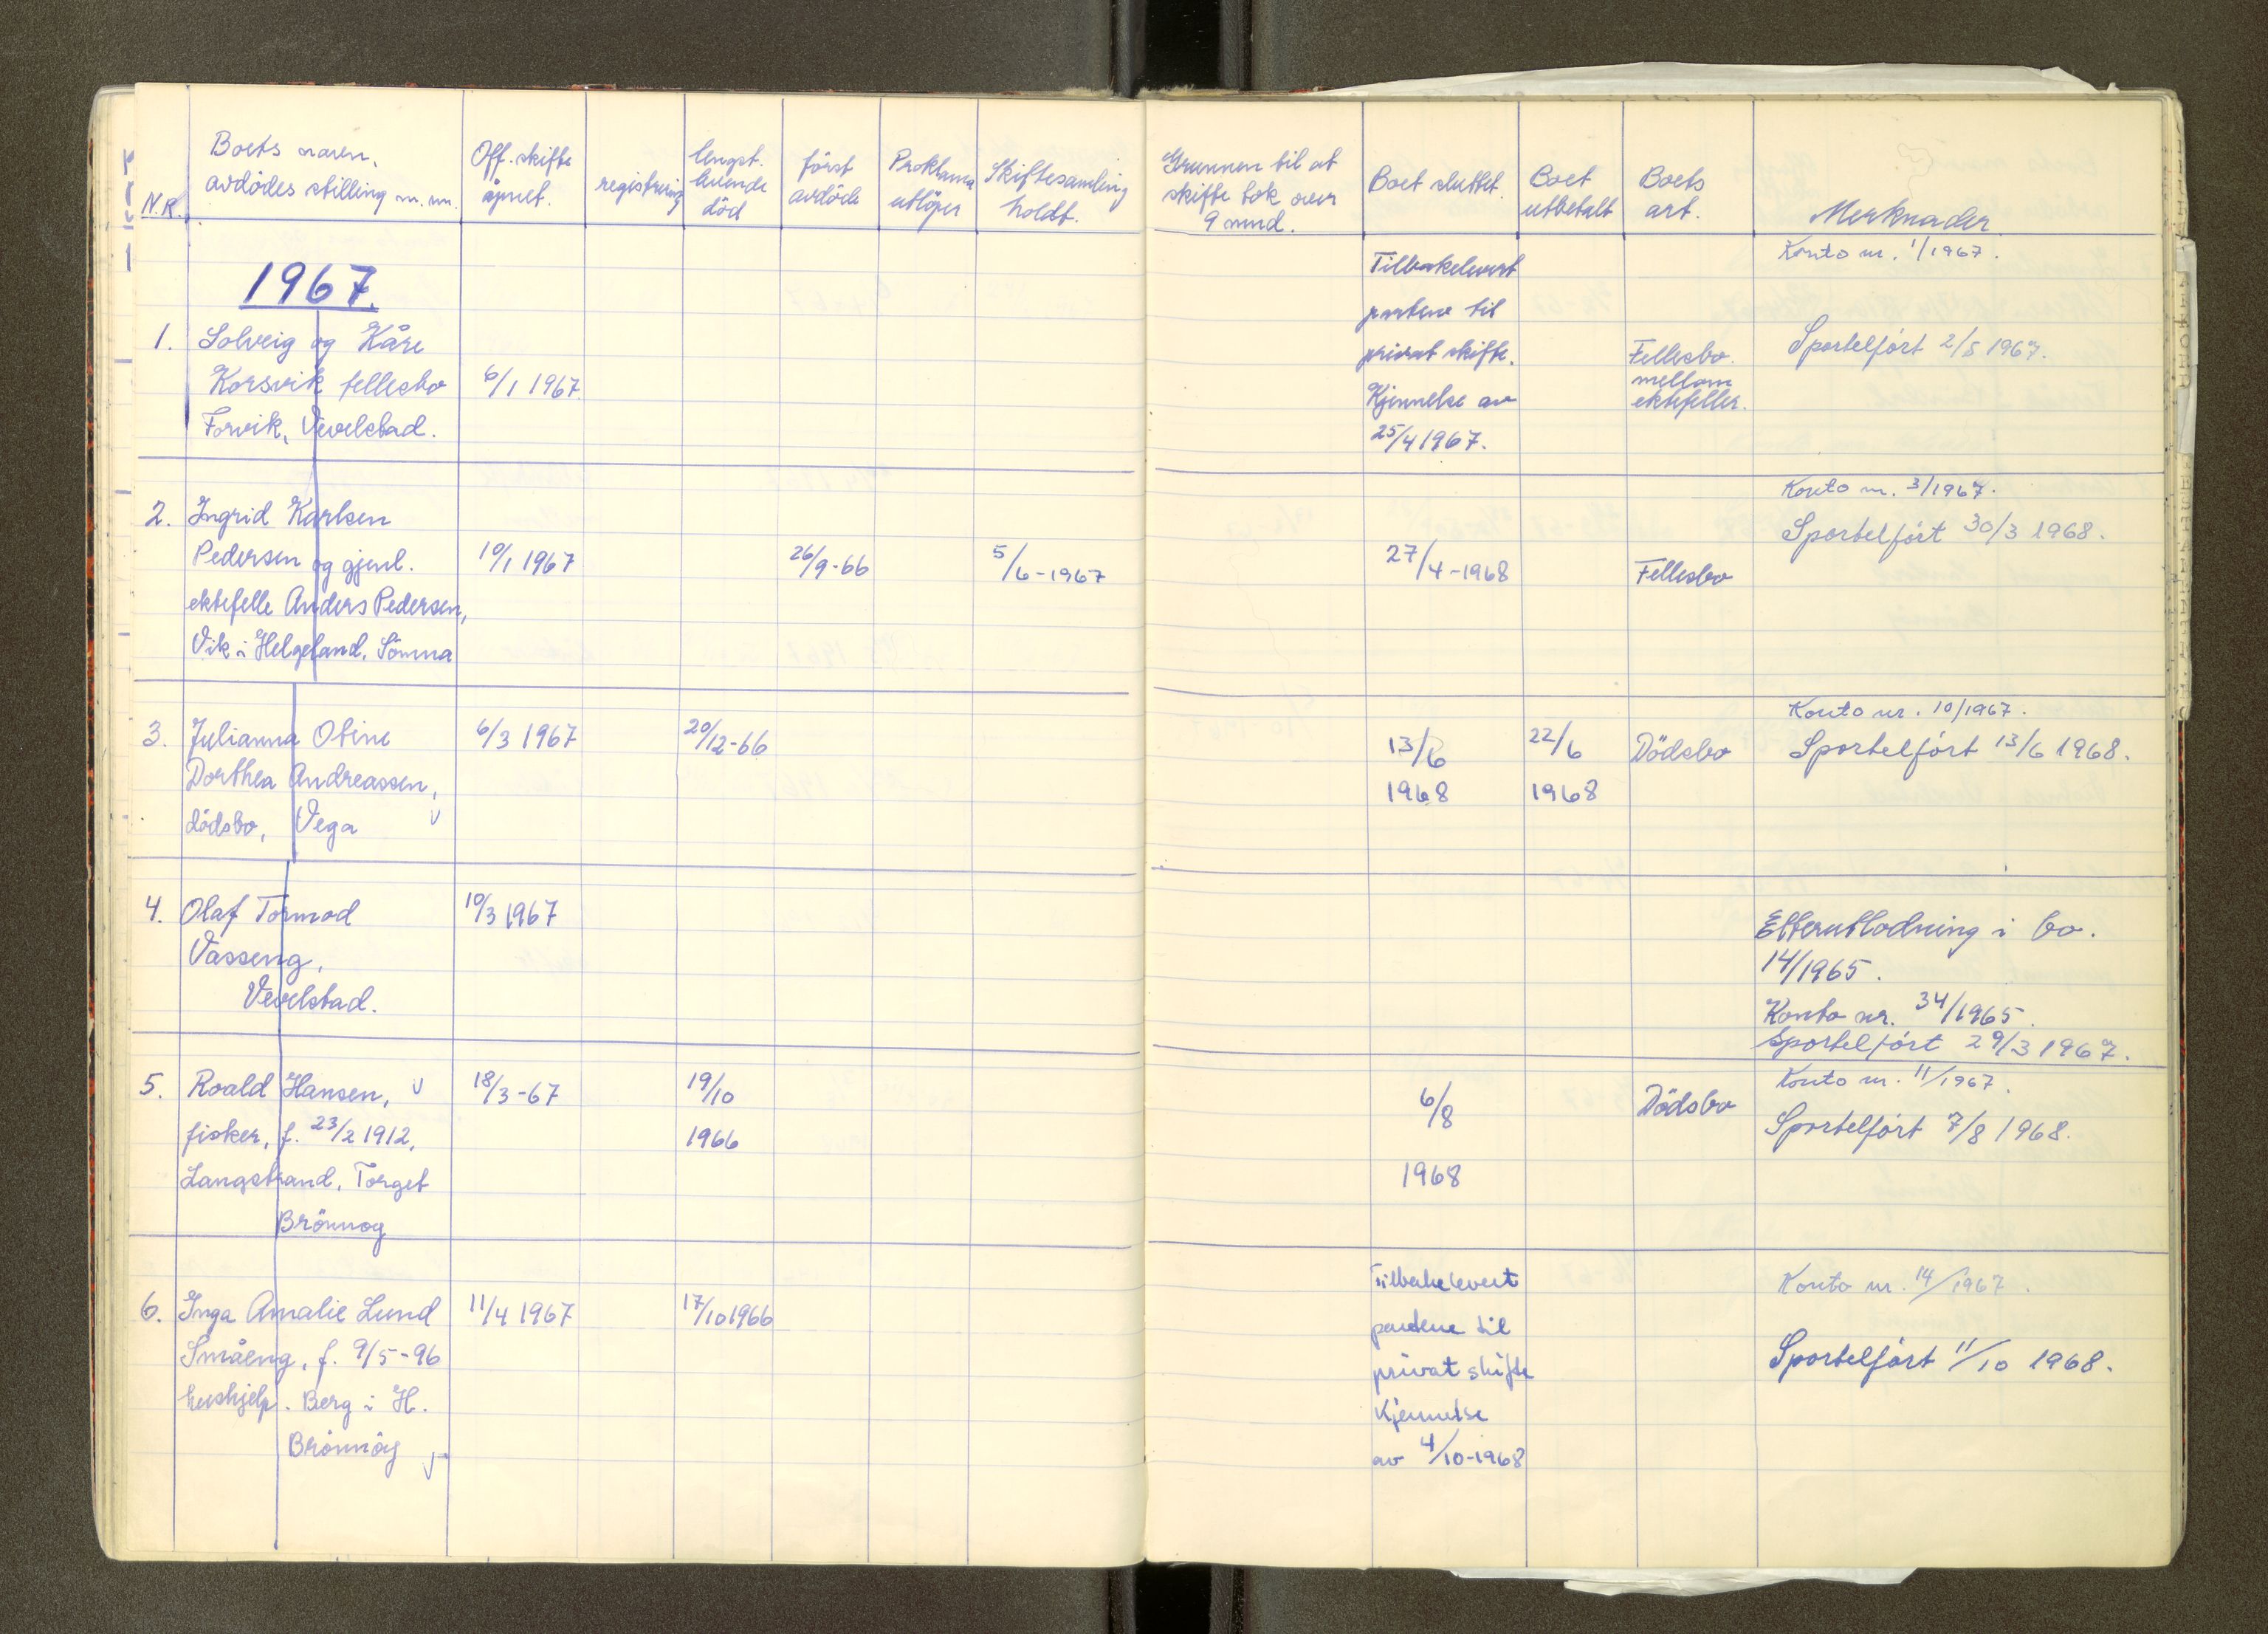 N.R.
Boets navn,
avdödes stilling m.m.
Off. skifte
åpnet.
registrering
lengst.
levende
död
först
avdöde
Proklama
utlöper
Skiftesamling
holdt.
Grunnen til at
skifte tok over
9 mnd.
Boet sluttet.
Boet
utbetalt
Boets
art.
Merknader.
1967.
1. Solveig og Kåre
Korsvik fellesbo
Forvik, Vevelstad.
6/1 1967
Tilbakelevert
partene til
privat skifte.
Kjennelse av
25/4 1967.
Fellesbo.
mellom
ektefeller.
Konto nr. 1/1967.
Sportelfört 2/5 1967.
2. Ingrid Karlsen
Pedersen og gjenl.
ektefelle Anders Pedersen,
Vik i Helgeland, Sömna
10/1 1967
26/9-66
5/6-1967
27/4-1968
Fellesbo
Konto nr. 3/1967.
Sportelfört 30/3 1968.
3. Julianna Otine
Dorthea Andreassen,
dödsbo, Vega
6/3 1967
20/12-66
13/6
1968
22/6
1968
Dödsbo
Konto nr. 10/1967.
Sportelfört 13/6 1968.
4. Olaf Tormod
Vasseng,
Vevelstad.
10/3 1967
Etterutlodning i bo.
14/1965.
Konto nr. 34/1965.
Sportelfört 29/3 1967.
5. Roald Hansen,
fisker, f. 23/2 1912,
Langstrand, Torget
Brönnoy
18/3-67
19/10
1966
6/8
1968
Dödsbo
Konto nr. 11/1967.
Sportelfört 7/8 1968.
6. Inga Amalie Lund
Småeng, f. 9/5-96
hushjelp. Berg i H.
Brönnöy
11/4 1967
17/10 1966
Tilbakelevert
partene til
privat skifte
Kjennelse
av 4/10-1968
Konto nr. 14/1967.
Sportelfört 11/10 1968.